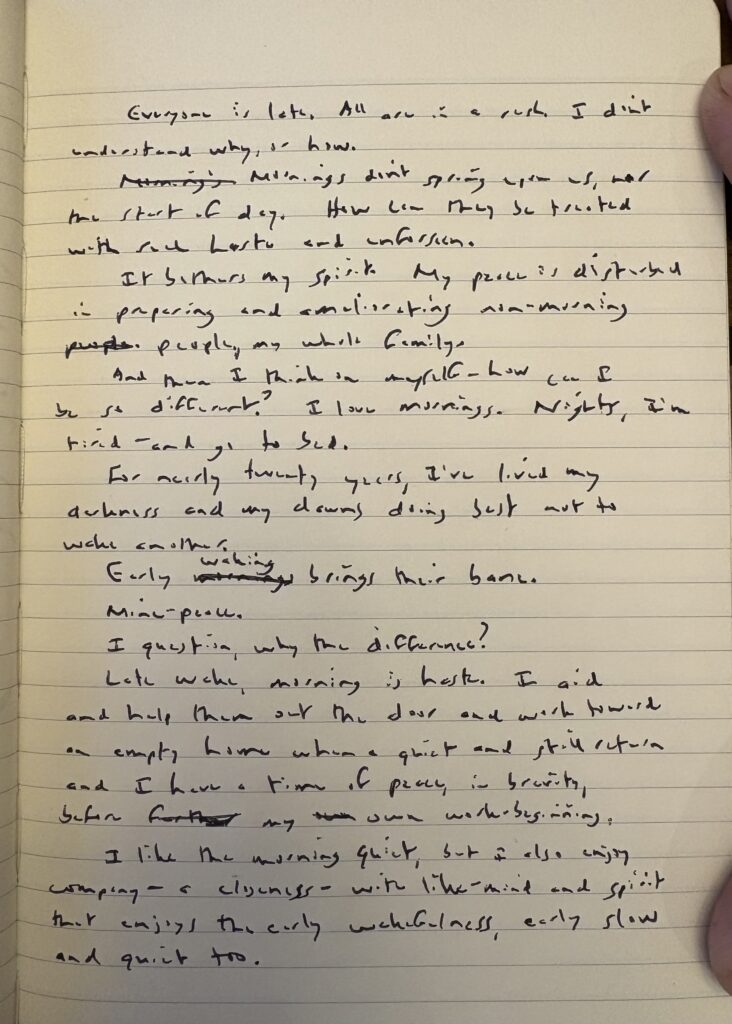 Everyone is late. All are in a rush. I don't
understand why, or how.
Morning's Mornings don't spring upon us, nor
the start of day. How can they be treated
with such haste and unforseen.
It bothers my spirit. My peace is disturbed
in preparing and ameliorating non-morning
people. people, my whole family.
And then I think on myself - how can I
be so different? I love mornings. Nights, I'm
tired - and go to bed.
For nearly twenty years, I've lived my
darkness and my dawns doing best not to
wake another.
Early mornings waking brings their bane.
Mine - peace.
I question, why the difference?
Late wake, morning is haste. I aid
and help them out the door and work toward
an empty home when a quiet and still return
and I have a time of peace, in brevity,
before my own work-beginning.
I like the morning quiet, but i also enjoy
company - a closeness - with like-mind and spirit
that enjoys the early wakefulness, early slow
and quiet too.